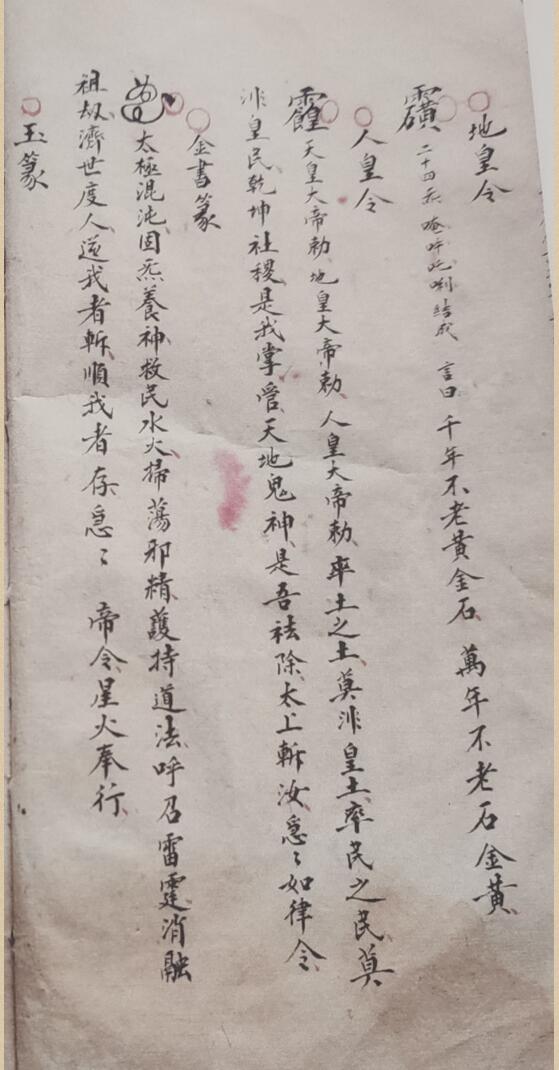 地皇令
二十四炁 唵吽吒唎結成 言曰 千年不老黃金石 萬年不老石金黃
人皇令
天皇大帝勅 地皇大帝勅 人皇大帝勅 率土之土莫非皇土率民之民莫
非皇民乾坤社稷是我掌管天地鬼神是吾祛除太上斬汝急々如律令
金書篆
太極混沌固炁養神救民水火掃蕩邪精護持道法呼召雷霆消融
祖劫濟世度人逆我者斬順我者存急々 帝令星火奉行
玉篆